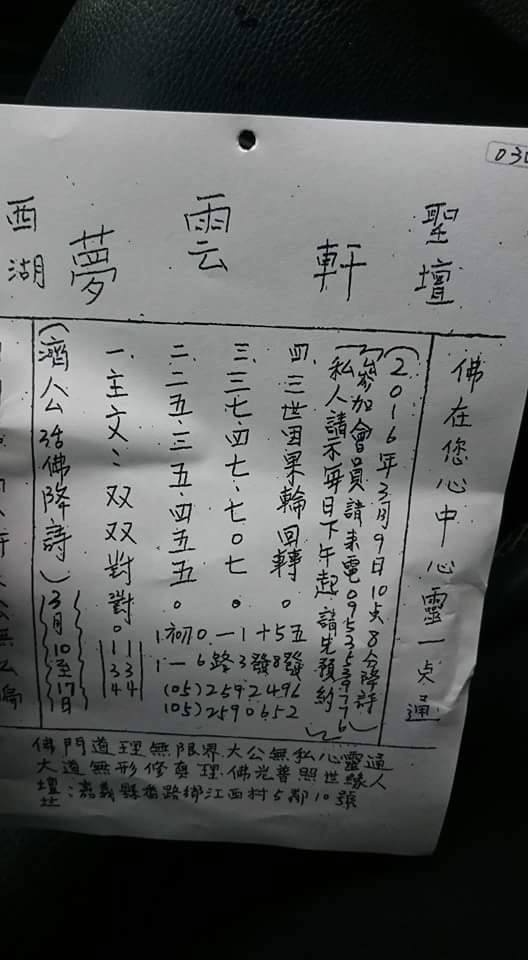 030
西湖 夢雲軒 聖壇
佛在您心中心靈一点通
(2016年3月9日10点8分降詩)
(參加會員請來電
私人請示每日下午起請先預約)
四.三世因果輪回轉。
三.三七.四七.七0七。
二.二五.三五.四五五。
一.主文:双双對對。
1.初0一1十5五
1一6路3發8發
(05)2592496
(05)2590652
11
33
44
(濟公活佛降詩)
3月10至17日
佛門道理無限界大公無私心靈通
大道無形修真理.佛光普照世緣人
壇址:嘉義縣番路鄉江西村5鄰10號